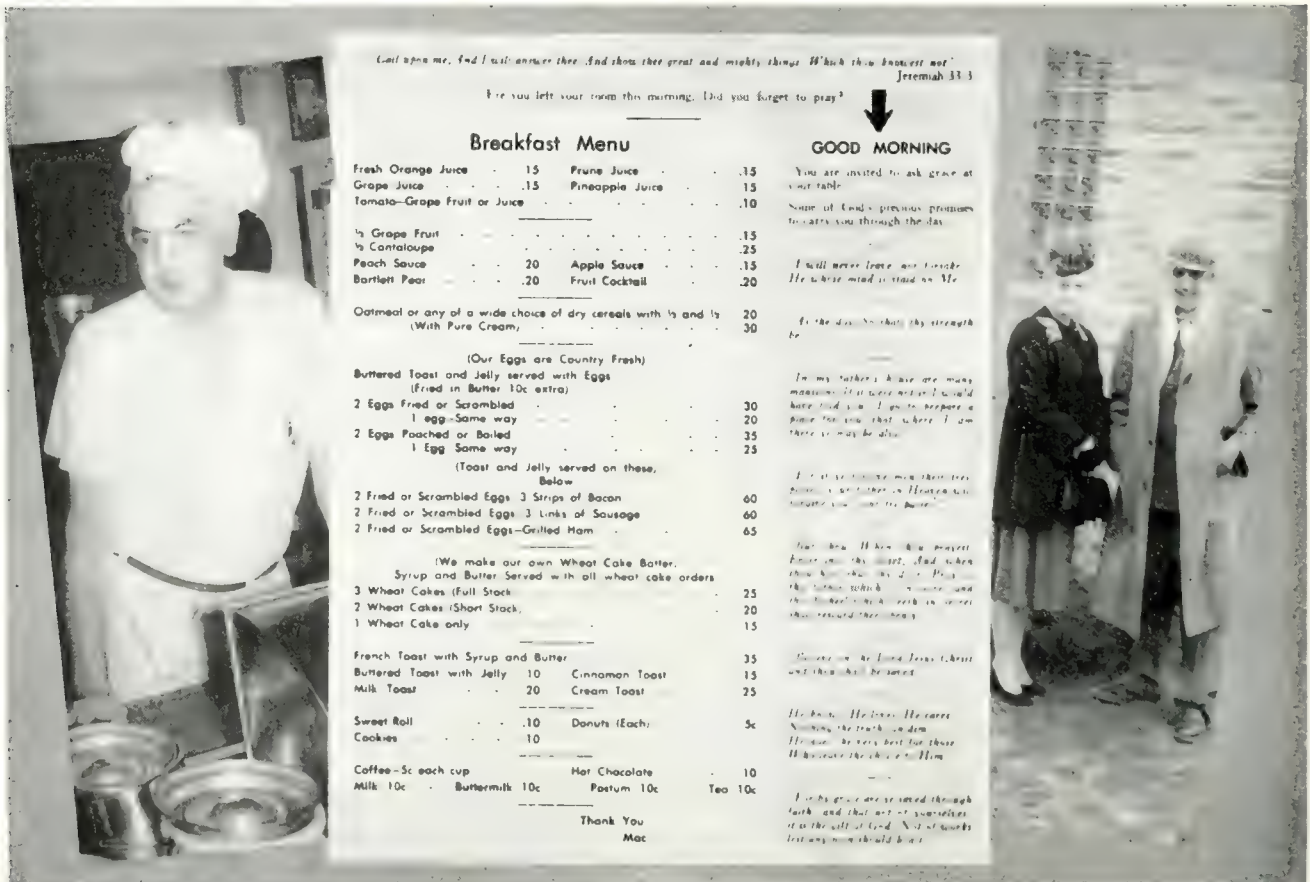 Call upon me, And I will answer thee And show thee great and mighty things Which thou knowest not"
Jeremiah 33 3
Ere you left your room this morning, Did you forget to pray?
Breakfast Menu
Fresh Orange Juice 15 Prune Juice .15
Grape Juice .15 Pineapple Juice 15
Tomato—Grape Fruit or Juice .10
½ Grape Fruit .15
½ Cantaloupe .25
Peach Sauce 20 Apple Sauce .15
Bartlett Pear .20 Fruit Cocktail .20
Oatmeal or any of a wide choice of dry cereals with ½ and ½ 20
(With Pure Cream) 30
(Our Eggs are Country Fresh)
Buttered Toast and Jelly served with Eggs
(Fried in Butter 10c extra)
2 Eggs Fried or Scrambled 30
1 egg—Same way 20
2 Eggs Poached or Boiled 35
1 Egg Same way 25
(Toast and Jelly served on these,
Below
2 Fried or Scrambled Eggs 3 Strips of Bacon 60
2 Fried or Scrambled Eggs 3 Links of Sausage 60
2 Fried or Scrambled Eggs—Grilled Ham 65
(We make our own Wheat Cake Batter,
Syrup and Butter Served with all wheat cake orders
3 Wheat Cakes (Full Stack 25
2 Wheat Cakes (Short Stack, 20
1 Wheat Cake only 15
French Toast with Syrup and Butter 35
Buttered Toast with Jelly 10 Cinnamon Toast 15
Milk Toast 20 Cream Toast 25
Sweet Roll .10 Donuts (Each) 5c
Cookies 10
Coffee—5c each cup Hot Chocolate 10
Milk 10c Buttermilk 10c Postum 10c Tea 10c
Thank You
Mac
GOOD MORNING
You are invited to ask grace at
your table
Some of God's precious promises
to carry you through the day
I will never leave nor forsake
He whose mind is staid on Me
As the day So shall thy strength
be
In my father's house are many
mansions if it were not so I would
have told you I go to prepare a
place for you that where I am
there ye may be also
men their
father in Heaven will
When thou prayest
Enter into thy closet, And when
thou hast shut
thy father which
the father which seeth in secret
shall reward thee
on the Lord Jesus Christ
and thou shalt be saved
He knows He loves He cares
Nothing the truth can dim
He gives the very best for those
Who leave the choice to Him
For by grace are ye saved through
faith and that not of yourselves
it is the gift of God Not of works
lest any man should boast